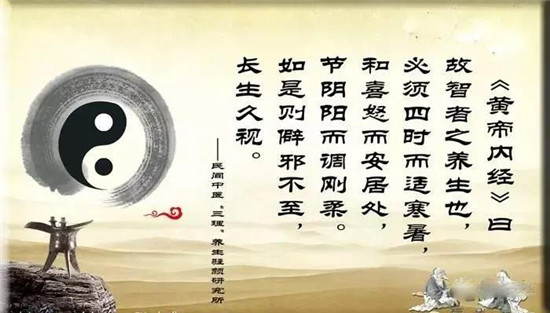 《黄帝内经》曰
故智者之养生也，
必须四时而适寒暑，
和喜怒而安居处，
节阴阳而调刚柔。
如是则僻邪不至，
长生久视。
——民间中医“三理”养生驻颜研究所